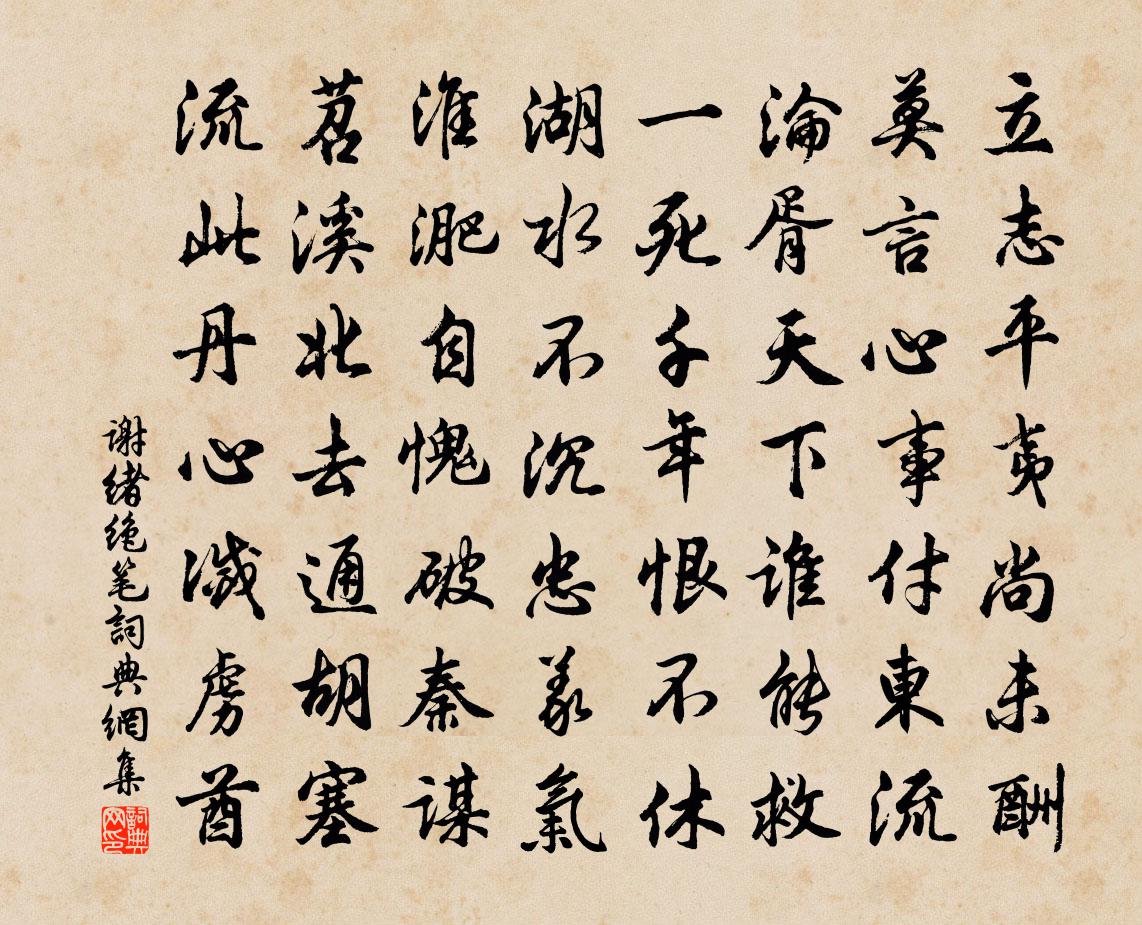 立志平夷尚未酬
莫言心事付東流
淪胥天下誰能救
一死千年恨不休
湖水不沉忠義氣
淮淝自愧破秦謀
苕溪北去通胡塞
流此丹心滅虜酋
谢绪绝笔詞典網集
詞典网印